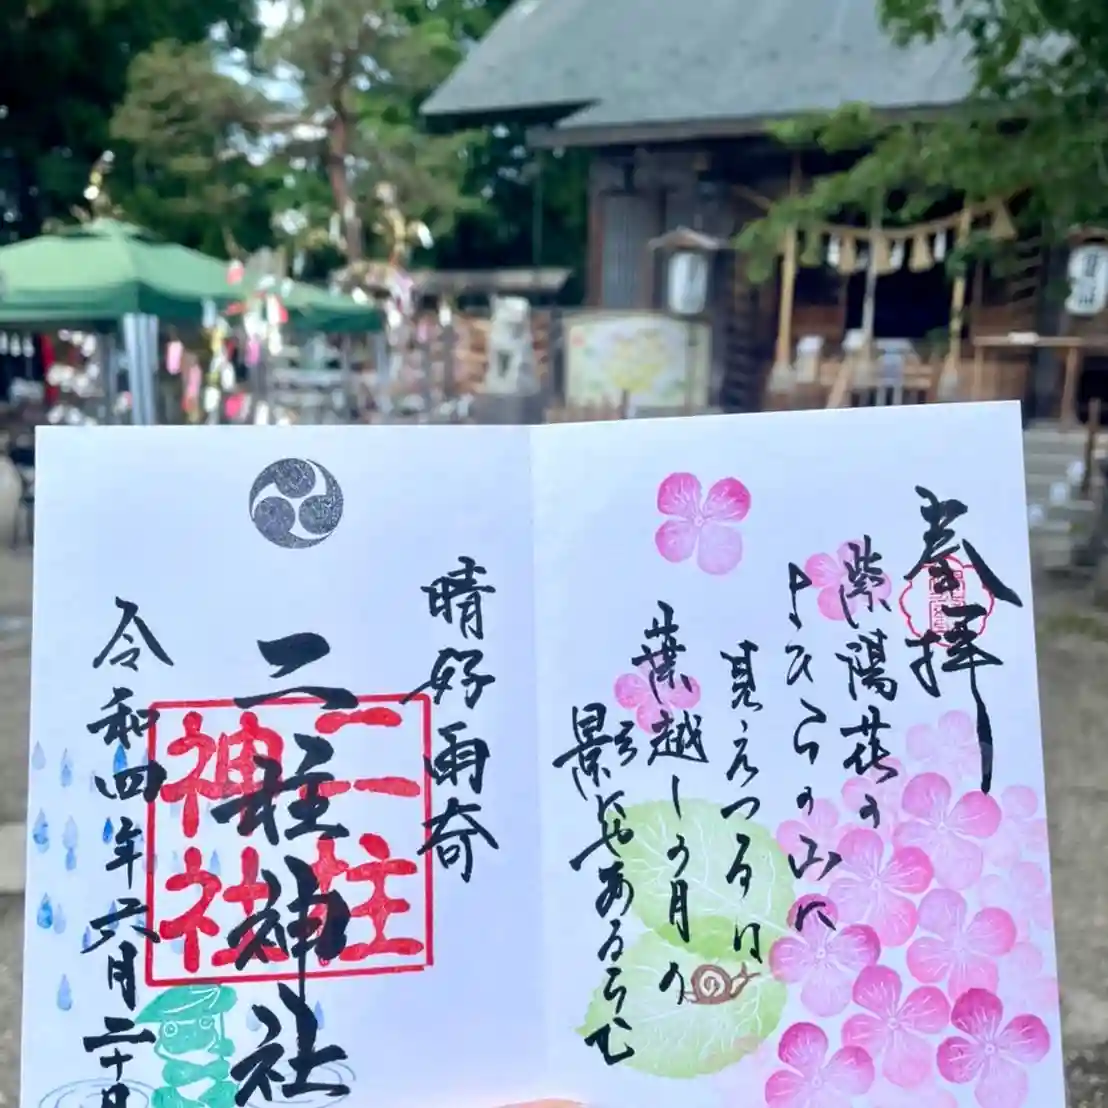 奉拝
紫陽花の
よひらの山に
見えつるは
葉越しの月の
影にやあるらむ
晴好雨奇
二柱神社
二柱
神社
令和四年六月二十日